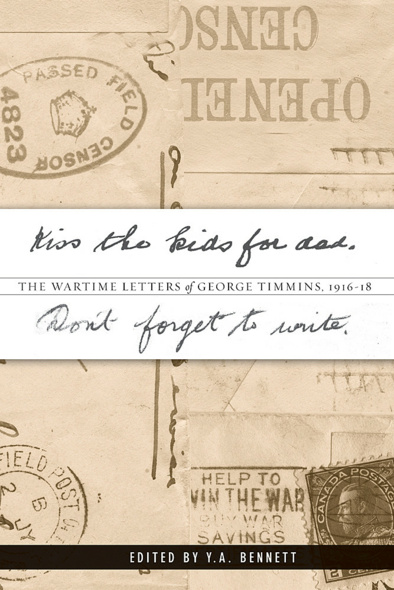 CENSO
OPENE
PASSED FIELD
CENSOR
4823
Kiss the kids for dad.
THE WARTIME LETTERS of GEORGE TIMMINS, 1916-18
Don't forget to write.
FIELD POST
HELP TO
WIN THE WAR
BUY WAR
SAVINGS
CANADA POSTAG
EDITED BY Y.A. BENNETT